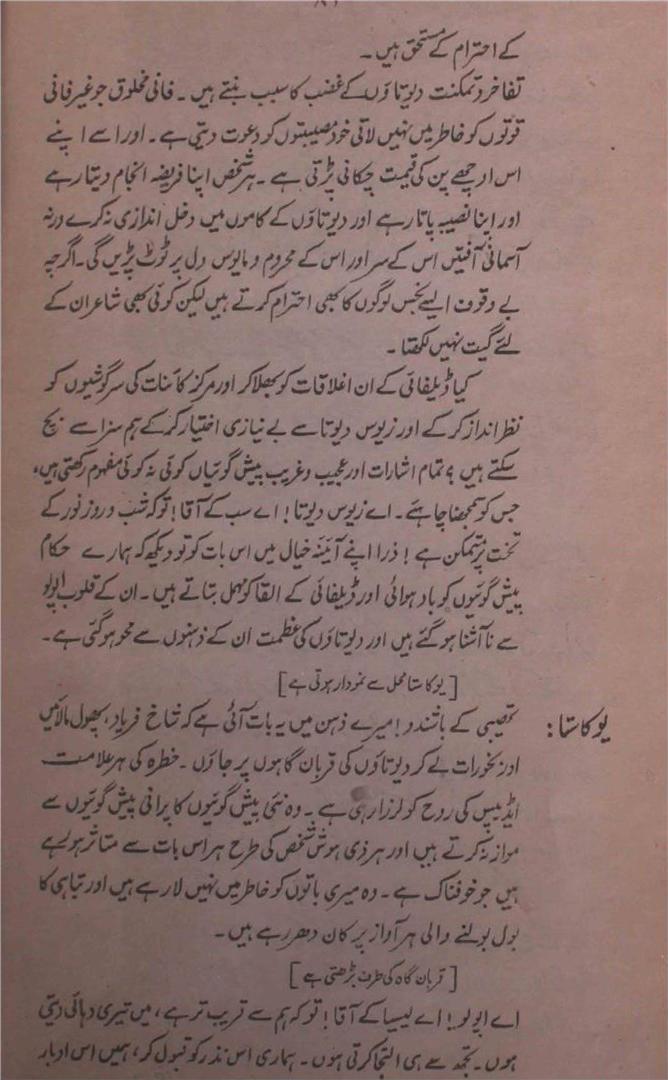 کے احترام کے مستحق ہیں۔
تفاخر و تمکنت دیوتاؤں کے غضب کا سبب بنتے ہیں۔ فانی مخلوق جو غیر فانی
قوتوں کو خاطر میں نہیں لاتی خود مصیبتوں کو دعوت دیتی ہے۔ اور اسے اپنے
اس ارچھے پن کی قیمت چکانی پڑتی ہے۔ ہر شخص اپنا فریضہ انجام دیتا رہے
اور اپنا نصیبہ پاتا رہے اور دیوتاؤں کے کاموں میں دخل اندازی نہ کرے ورنہ
آسمانی آفتیں اس کے سر اور اس کے محروم و مایوس دل پر ٹوٹ پڑیں گی۔ اگرچہ
بے وقوف ایسے نجس لوگوں کا بھی احترام کرتے ہیں لیکن کوئی بھی شاعر ان کے
لئے گیت نہیں لکھتا۔
کیا ڈیلفائی کے ان اعلاقات کو بھلا کر اور مرکز کائنات کی سرگوشیوں کو
نظر انداز کر کے اور زیوس دیوتا سے بے نیازی اختیار کر کے ہم سزا سے بچ
سکتے ہیں؟ تمام اشارات اور عجیب و غریب پیش گوئیاں کوئی نہ کوئی مفہوم رکھتی ہیں،
جس کو سمجھنا چاہئے۔ اے زیوس دیوتا! اے سب کے آقا! تو کہ شب و روز نور کے
تخت پر متمکن ہے! ذرا اپنے آئینۂ خیال میں اس بات کو تو دیکھ کہ ہمارے حکام
پیش گوئیوں کو باد ہوائی اور ڈیلفائی کے القا کو مہمل بتاتے ہیں۔ ان کے قلوب اپولو
سے نا آشنا ہو گئے ہیں اور دیوتاؤں کی عظمت ان کے ذہنوں سے محو ہو گئی ہے۔
[یوکاستا محل سے نمودار ہوتی ہے]
یوکاستا: تھیبی کے باشندو! میرے ذہن میں یہ بات آئی ہے کہ شاخ فریاد، پھول مالائیں
اور بخورات لے کر دیوتاؤں کی قربان گاہوں پر جاؤں۔ خطرہ کی ہر علامت
ایڈیپس کی روح کو لرزا رہی ہے۔ وہ نئی پیش گوئیوں کا پرانی پیش گوئیوں سے
موازنہ کرتے ہیں اور ہر ذی ہوش شخص کی طرح ہر اس بات سے متاثر ہو رہے
ہیں جو خوفناک ہے۔ وہ میری باتوں کو خاطر میں نہیں لا رہے ہیں اور تباہی کا
بول بولنے والی ہر آواز پر کان دھر رہے ہیں۔
[قربان گاہ کی طرف بڑھتی ہے]
اے اپولو! اے لیسیا کے آقا! تو کہ ہم سے قریب تر ہے، میں تیری دہائی دیتی
ہوں۔ تجھ سے ہی التجا کرتی ہوں۔ ہماری اس نذر کو قبول کر، ہمیں اس ادبار